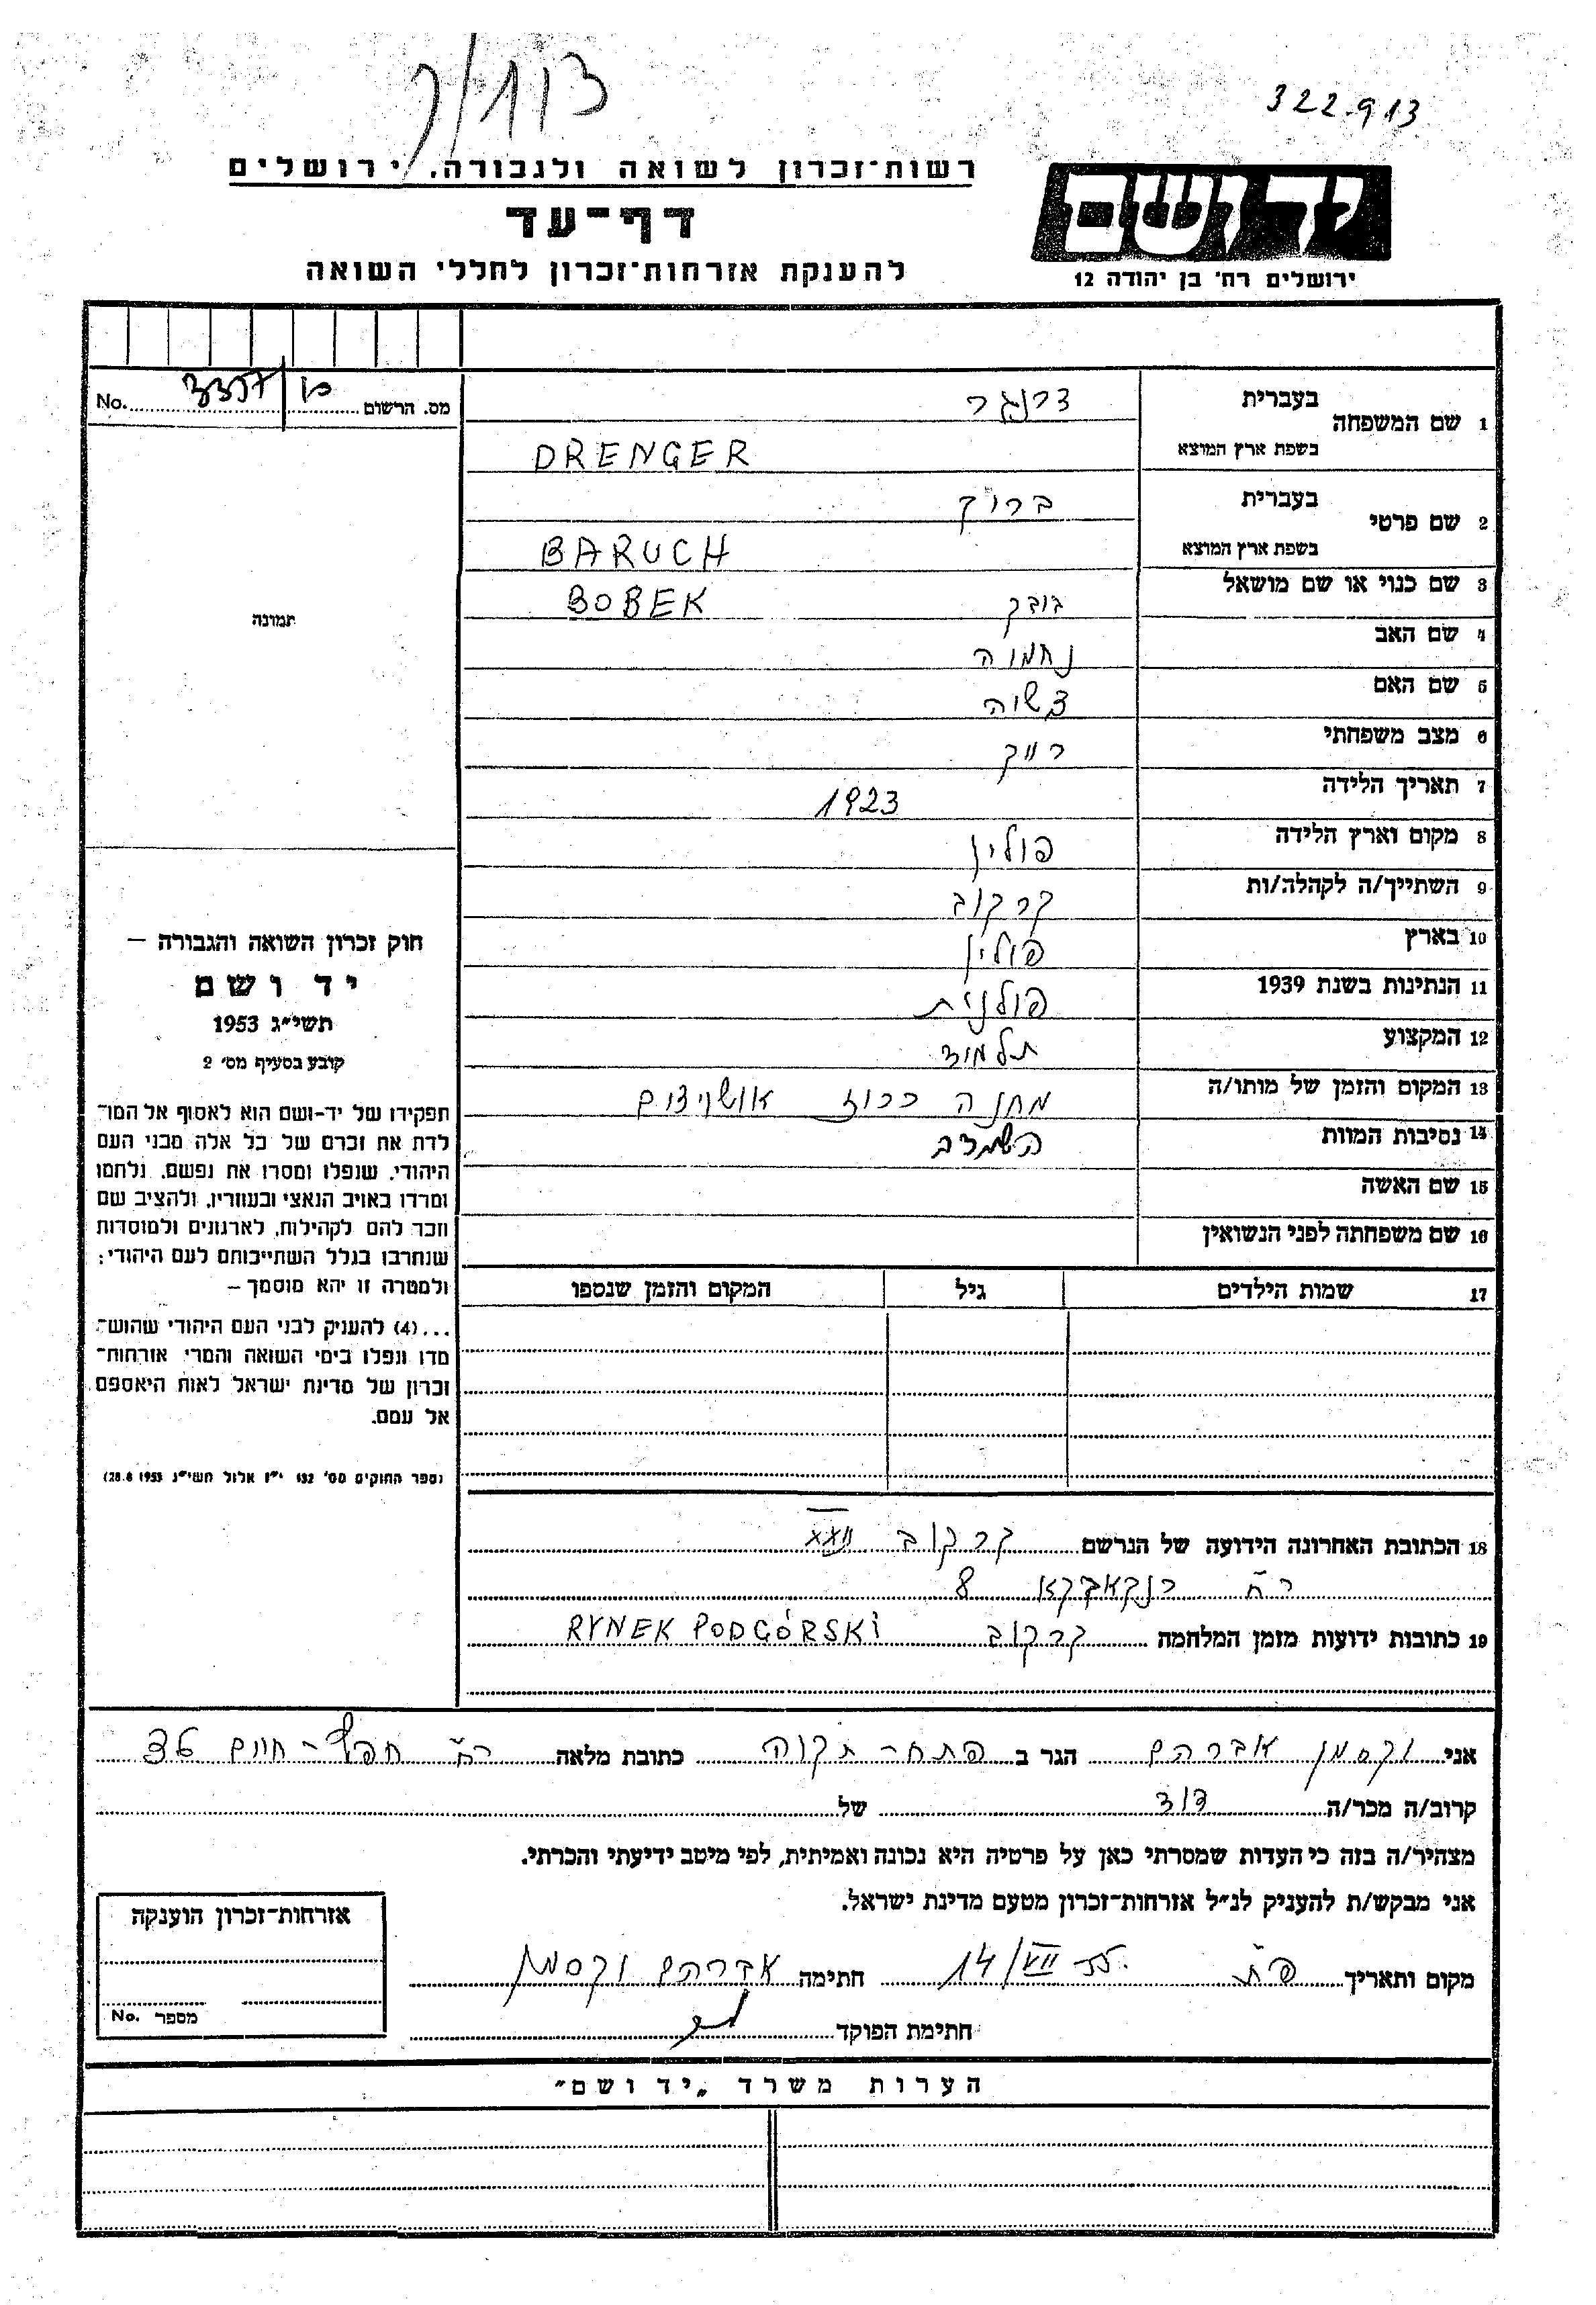 322.913
רשות־זכרון לשואה ולגבורה, ירושלים
דף־עד
להענקת אזרחות־זכרון לחללי השואה
יד ושם
ירושלים רח׳ בן יהודה 12
מס. הרשום No.
1 שם המשפחה בעברית דרנגר
בשפת ארץ המוצא DRENGER
2 שם פרטי בעברית ברוך
בשפת ארץ המוצא BARUCH
3 שם כנוי או שם מושאל בובק BOBEK
4 שם האב נחמיה
5 שם האם
6 מצב משפחתי רווק
7 תאריך הלידה 1923
8 מקום וארץ הלידה פולין
9 השתייך/ה לקהלה/ות קרקוב
10 בארץ פולין
11 הנתינות בשנת 1939 פולנית
12 המקצוע תלמוד
13 המקום והזמן של מותו/ה מחנה רכוז אושויצים
14 נסיבות המוות
15 שם האשה
16 שם משפחתה לפני הנשואין
17 שמות הילדים גיל המקום והזמן שנספו
תמונה
חוק זכרון השואה והגבורה –
יד ושם
תשי״ג 1953
קובע בסעיף מס׳ 2
תפקידו של יד-ושם הוא לאסוף אל המו־
לדת את זכרם של כל אלה מבני העם
היהודי, שנפלו ומסרו את נפשם, נלחמו
ומרדו באויב הנאצי ובעוזריו, ולהציב שם
וזכר להם לקהילות, לארגונים ולמוסדות
שנחרבו בגלל השתייכותם לעם היהודי;
ולמטרה זו יהא מוסמך –
...(4) להעניק לבני העם היהודי שהוש־
מדו ונפלו בימי השואה והמרי אזרחות־
זכרון של מדינת ישראל לאות היאספם
אל עמם.
(ספר החוקים מס׳ 132 י״ז אלול תשי״ג 28.8.1953)
18 הכתובת האחרונה הידועה של הנרשם קרקוב XXII
רח׳ 8
19 כתובות ידועות מזמן המלחמה קרקוב RYNEK PODGÓRSKI
אני וקסמן אברהם הגר ב פתח-תקוה כתובת מלאה רח׳ חפץ-חיים 36
קרוב/ה מכר/ה דוד של
מצהיר/ה בזה כי העדות שמסרתי כאן על פרטיה היא נכונה ואמיתית, לפי מיטב ידיעתי והכרתי.
אני מבקש/ת להעניק לנ״ל אזרחות־זכרון מטעם מדינת ישראל.
מקום ותאריך פ״ת 14/VII 55. חתימה אברהם וקסמן
חתימת הפוקד
אזרחות־זכרון הוענקה
מספר No.
הערות משרד „יד ושם״